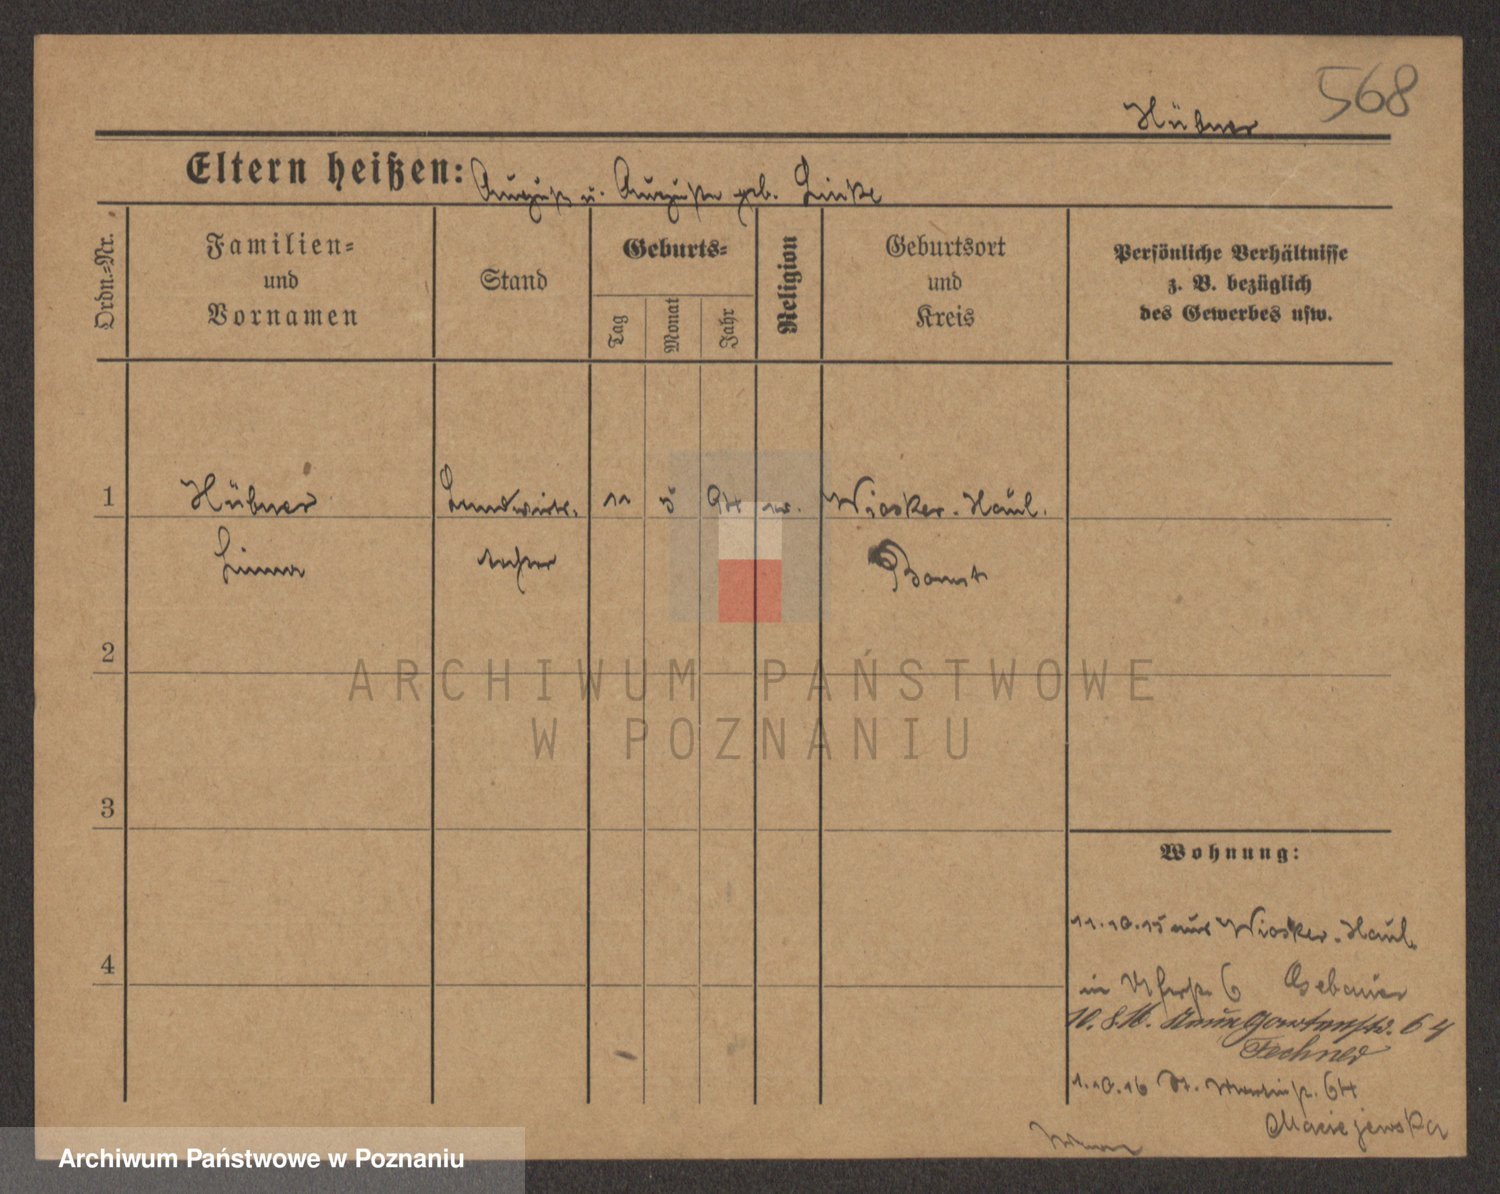 568
Hübner
Eltern heißen: August u. Auguste geb. Linke
Ordn.=Nr.
Familien=
und
Vornamen
Stand
Geburts=
Tag
Monat
Jahr
Religion
Geburtsort
und
Kreis
Persönliche Verhältnisse
z. B. bezüglich
des Gewerbes usw.
1
Hübner
Landwirts.
11
5
94
ev.
Wiosker-Haul.
Emma
tochter
Bomst
2
ARCHIWUM PAŃSTWOWE
W POZNANIU
3
Wohnung:
11.10.15 aus Wiosker-Haul.
4
in 6 Gebauer
10.8.16. Neue Gartenstr. 64
Fechner
1.10.16 St. Martinstr. 64
Maciejewska
Archiwum Państwowe w Poznaniu